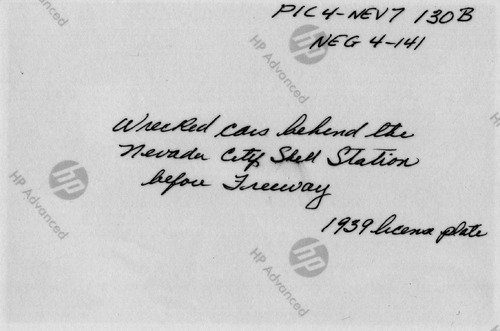 PIC 4-NEV7 130B
NEG 4-141
Wrecked cars behind the
Nevada City Shell Station
before Freeway
1939 license plate
hp
HP Advanced
hp
HP Advanced
hp
HP Advanced
hp
HP Advanced